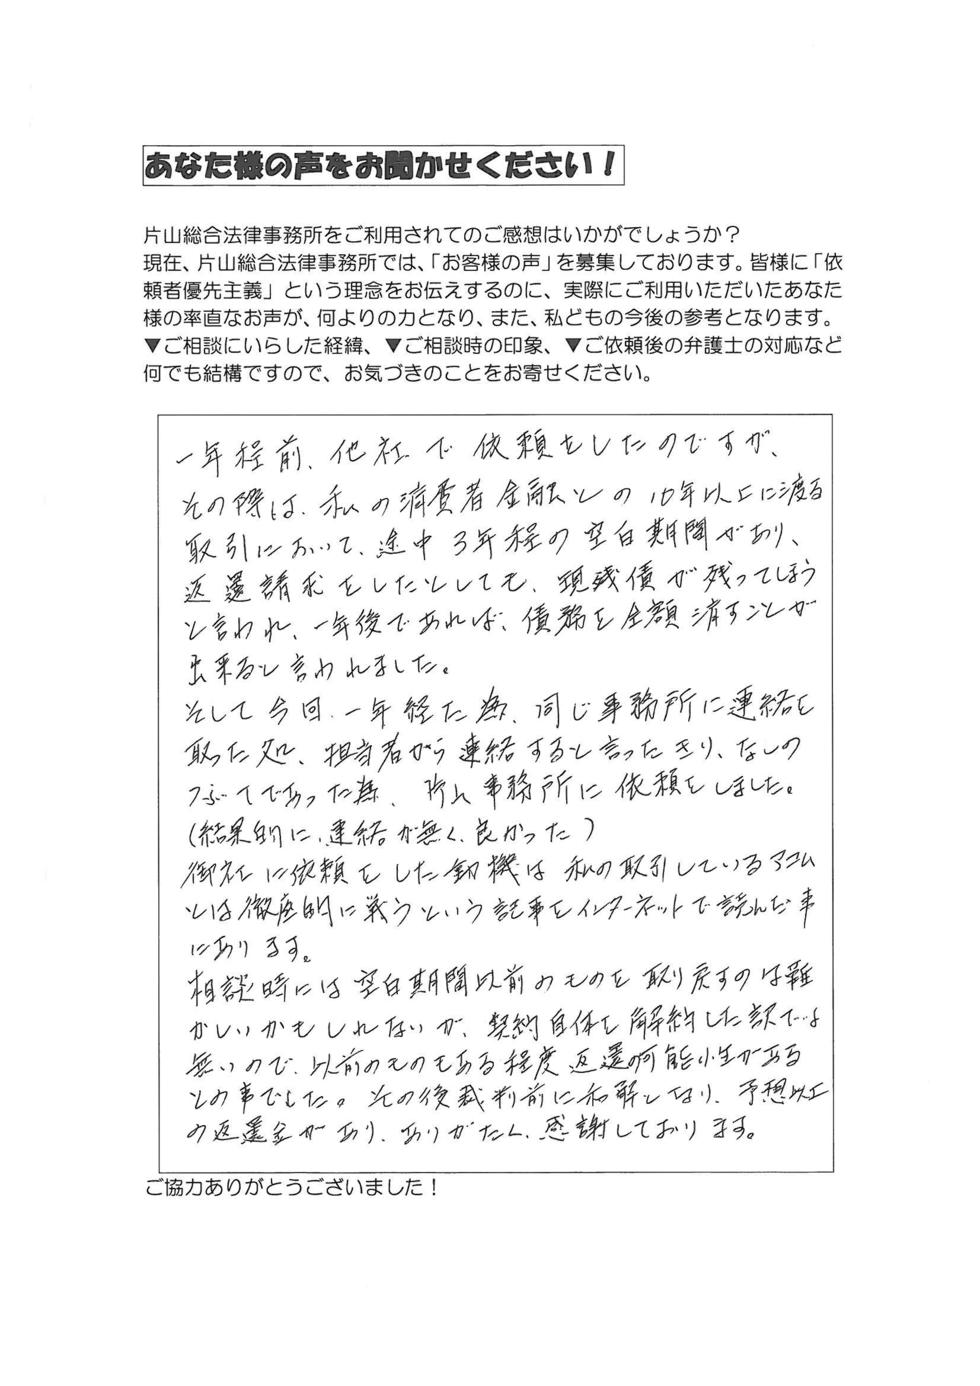 あなた様の声をお聞かせください！
片山総合法律事務所をご利用されてのご感想はいかがでしょうか？
現在、片山総合法律事務所では、「お客様の声」を募集しております。皆様に「依
頼者優先主義」という理念をお伝えするのに、実際にご利用いただいたあなた
様の率直なお声が、何よりの力となり、また、私どもの今後の参考となります。
▼ご相談にいらした経緯、▼ご相談時の印象、▼ご依頼後の弁護士の対応など
何でも結構ですので、お気づきのことをお寄せください。
一年程前、他社で依頼をしたのですが、
その際は、私の消費者金融との10年以上に渡る
取引において、途中3年程の空白期間があり、
返還請求をしたとしても、現残債が残ってしまう
と言われ、一年後であれば、債務を全額消すことが
出来ると言われました。
そして今回、一年経た為、同じ事務所に連絡を
取った処、担当者から連絡すると言ったきり、なしの
つぶてであった為、片山事務所に依頼をしました。
(結果的に、連絡が無く、良かった)
御社に依頼をした動機は私の取引しているアコム
とは徹底的に戦うという記事をインターネットで読んだ事
にあります。
相談時には空白期間以前のものを取り戻すのは難
かしいかもしれないが、契約自体を解約した訳では
無いので、以前のものもある程度返還の可能性がある
との事でした。その後裁判前に和解となり、予想以上
の返還金があり、ありがたく、感謝しております。
ご協力ありがとうございました！